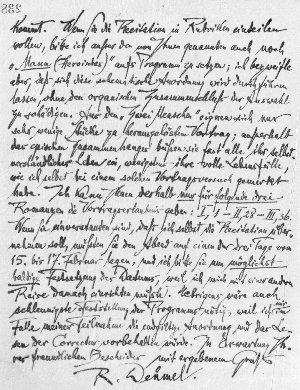 388
kommt. Wenn Sie die Recitation in Rubriken einteilen
wollen, bitte ich ausser den von Ihnen genannten auch noch
„Mann (Heroisches)" aufs Programm zu setzen; ich bezweifle
aber, daß sich diese schematische Anordnung wird durchführen
lassen, ohne den organischen Zusammenschluß der Auswahl
zu schädigen. Aus den „Zwei Menschen" eignen sich nur
sehr wenige Stücke zu herausgelöstem Vortrag; außerhalb
der epischen Zusammenhänge büßen sie fast alle ihr selbst-
verständliches Leben ein, wenigstens ihre volle Lebensfülle,
wie ich selbst bei einem solchen Vortragsversuch gemerkt
habe. Ich kann Ihnen deshalb nur für folgende drei
Romanzen die Vortragserlaubnis geben: I, 1 – II, 28 – III, 36.
Wenn Sie einverstanden sind, daß ich selbst die Recitation über-
nehmen soll, müßten Sie den Abend auf einen der drei Tage vom
15. bis 17. Februar legen; und ich bitte Sie um möglichst
baldige Festsetzung des Datums, weil ich mich mit einer andern
Reise danach einrichten müßte. Uebrigens wäre auch
schleunigste Feststellung des Programms nötig, weil ich mir im
Falle meiner Teilnahme die endgiltige Anordnung und das Le-
sen der Correctur vorbehalten würde. In Erwartung Ih-
rer freundlichen Bescheides mit ergebenem Gruß
R. Dehmel.